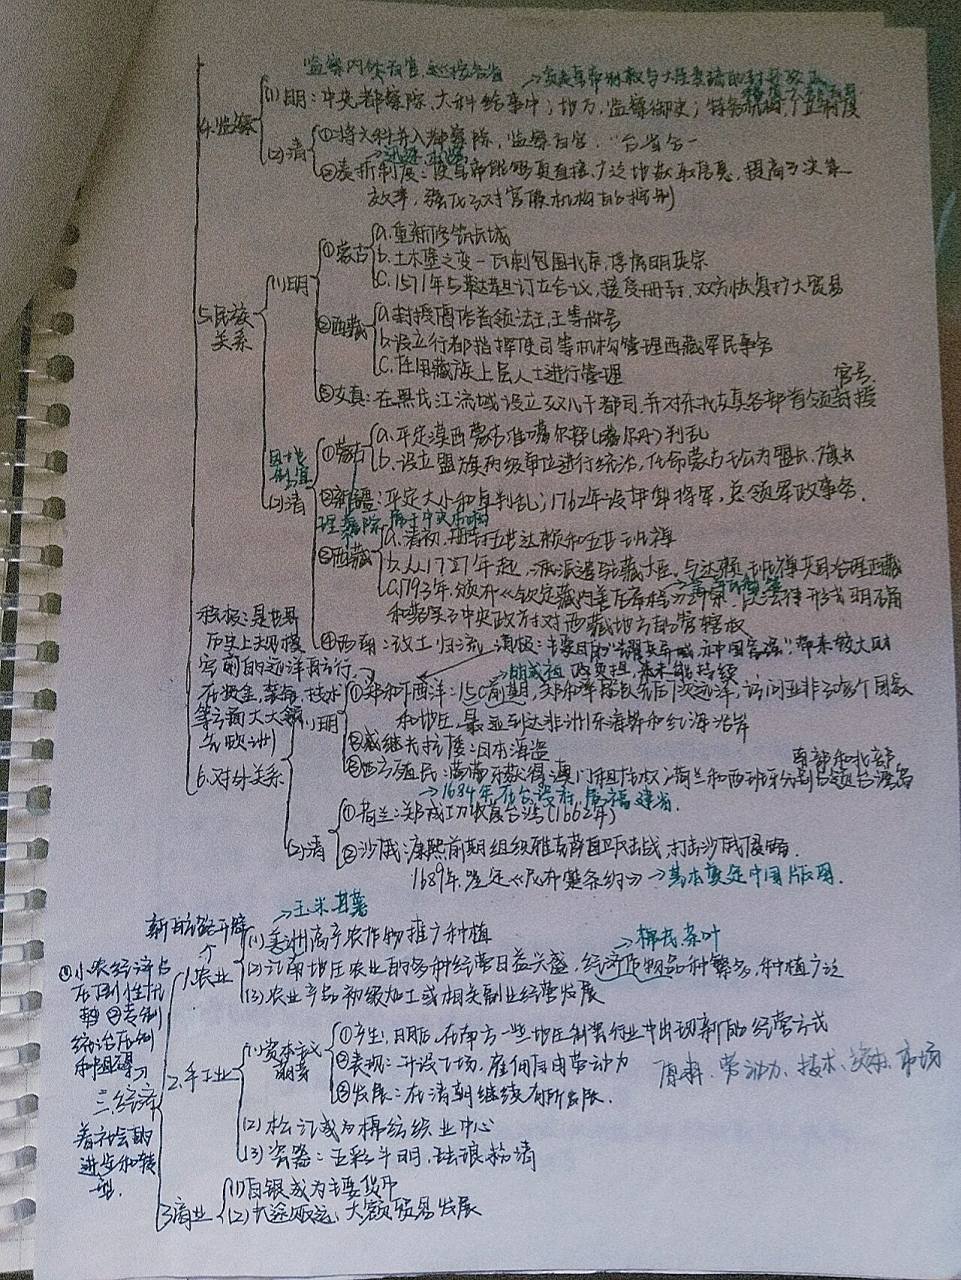 监察内外百官,巡按各省
(1)明:中央都察院、六科给事中;地方,监察御史;特务机构,厂卫制度
4.监察
①将六科并入都察院,监察百官,"台省合一
(2)清
②奏折制度:使皇帝能够更直接、广泛地获取信息,提高了决策
效率,强化了对官僚机构的控制
a.重新修筑长城
①蒙古 b.土木堡之变—瓦剌包围北京,俘虏明英宗
(1)明 c.1571年与鞑靼订立合议,接受册封,双方恢复扩大贸易
5.民族
关系
a.封授僧俗首领法王,王等称号
②西藏 b.设立行都指挥使司等机构管理西藏军民事务
c.任用藏族上层人士进行管理
官号.
③女真:在黑龙江流域设立奴儿干都司,并对东北女真各部首领封授
因地
制宜
a.平定漠西蒙古准噶尔部(噶尔丹)判乱
①蒙古 b.设立盟旗两级单位进行统治,任命蒙古王公为盟长、旗长
(2)清
②新疆:平定大小和卓判乱;1762年设伊犁将军,总领军政事务.
理藩院,属于中央机构
a.清初,册封五世达赖和五世班禅
③西藏 b.从1727年起,派遣驻藏大臣,与达赖、班禅共同治理西藏
c.1793年,颁布《钦定藏内善后章程》 以法律形式明确
和落实了中央政府对西藏地方的管辖权
④西南:改土归流
消极:主要目的"耀兵异域,示中国富强",带来较大财
政负担,未能持续
积极:是世界
历史上大规模
空前的远洋航行,
在资金、装备、技术
等方面大大领
先欧洲
→明成祖
(1)明 ①郑和下西洋:15C前期,郑和率船队先后7次远洋,访问亚非30多个国家
和地区,最远到达非洲东海岸和红海沿岸
②戚继光抗倭:日本海盗
南部和北部
③西方殖民:葡萄牙获得澳门租住权;荷兰和西班牙分割占领台湾岛
6.对外关系
→1684年在台设府,属福建省.
①荷兰:郑成功收复台湾(1662年)
(2)清
②沙俄:康熙前期组织雅克萨自卫反击战,打击沙俄侵略.
1689年,签定《尼布楚条约》→基本奠定中国版图.
→玉米、甘薯
新航路开辟
(1)美洲高产农作物推广种植
→棉花、茶叶
1.农业 (2)江南地区农业的多种经营日益兴盛,经济作物品种繁多,种植广泛
(3)农业产品初级加工或相关副业经营发展
①小农经济占
②专制
统治压制
和阻碍
①产生:明后,在南方一些地区制瓷行业中出现新的经营方式
(1)资本主义
萌芽
②表现:开设工场,雇佣自由劳动力
原料、劳动力、技术、资本、市场
③发展:在清朝继续有所发展.
2.手工业
(2)松江成为棉纺织业中心
(3)瓷器:五彩斗明,珐琅粉清
三.经济
着社会的
进步和转
型.
3.商业 (1)白银成为主要货币
(2)长途贩运、大额贸易发展